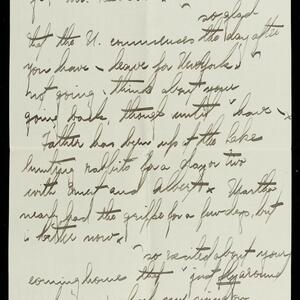 so glad
that the U. commences the day after
you have - leave for New York.
not going think about your
going back, though until I have -
Father has been up at the Lake
hunting rabbits for a day or two
with Ernest and Albert. Martha
mary had the grippe for a few days, but
is better now.
so excited about your
coming home that I just fly around